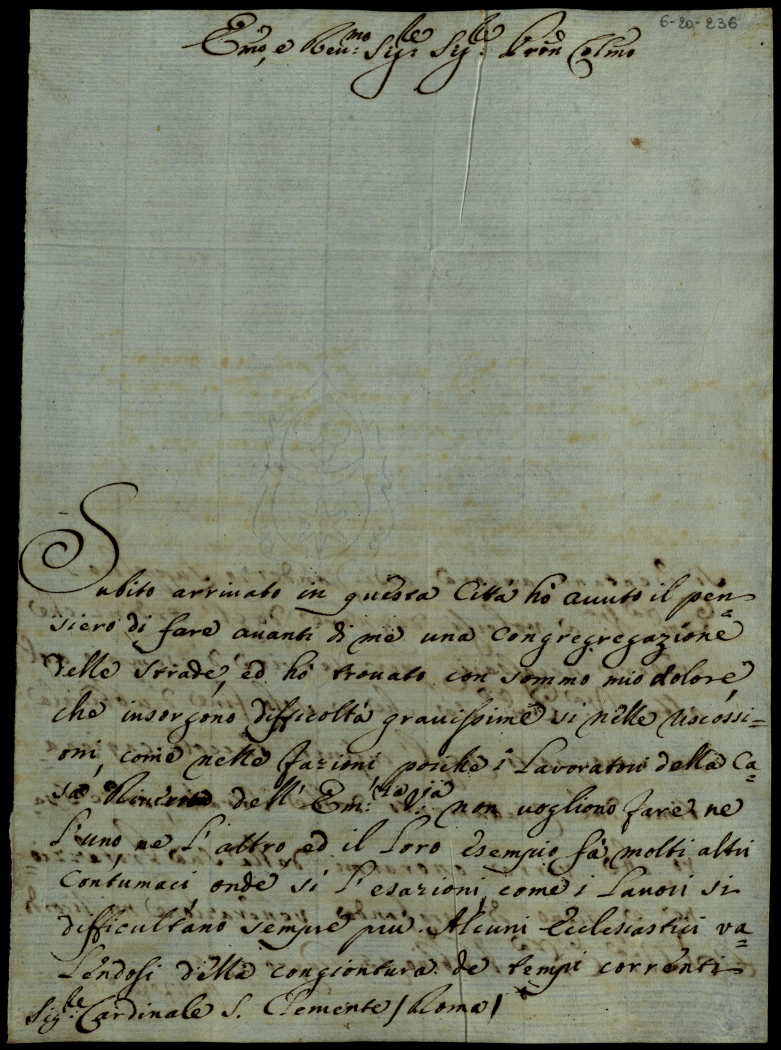 6-20-236
Emo, e Reu:mo Sig:re Sig:re Pron Colmo
Subito arriuato in questa Città hò auuto il pen=
siero di fare auanti di me una Congregregazione
delle strade, ed hò trouato con sommo mio dolore,
che insorgono difficoltà grauissime si nelle riscossi=
oni, come nelle fazioni poiche i Lavoratori della Ca=
sa dell' Em:za V:ra non uogliono fare ne
l'uno, ne l'altro ed il loro esempio fà molti altri
Contumaci, onde si l'esazioni, come i Lauori si
difficultano sempre più. Alcuni Ecclesiastici va=
lendosi della congiontura de tempi correnti
Sig:re Cardinale S. Clemente / Roma /